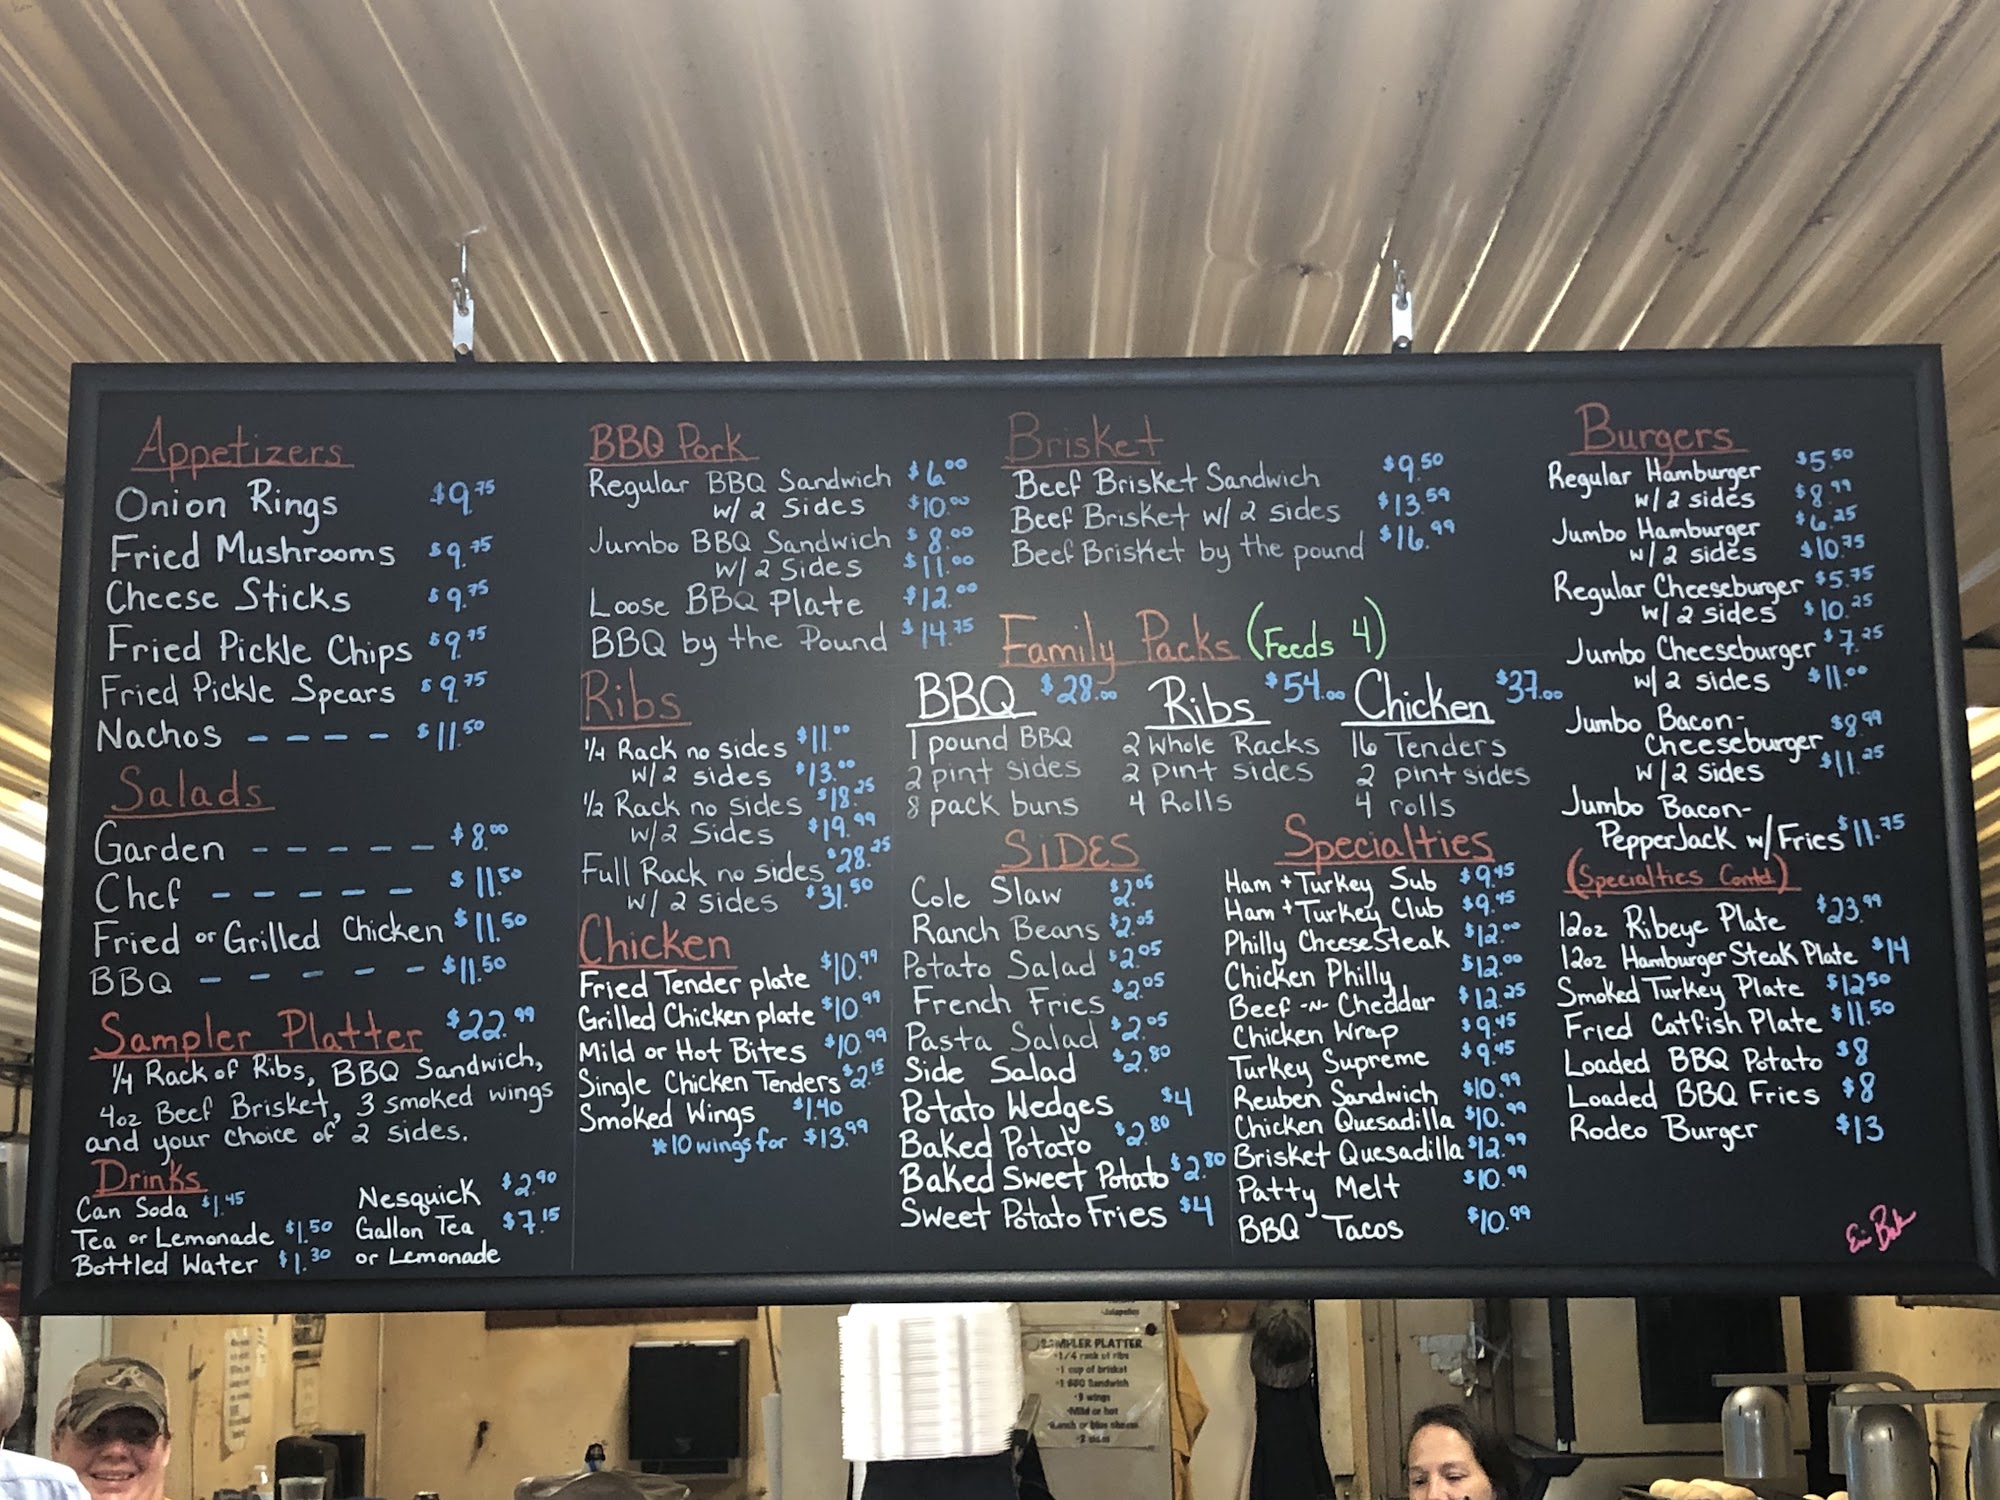 Appetizers
Onion Rings $9.75
Fried Mushrooms $9.75
Cheese Sticks $9.75
Fried Pickle Chips $9.75
Fried Pickle Spears $9.75
Nachos - - - - $11.50
Salads
Garden - - - - - $8.00
Chef - - - - - $11.50
Fried or Grilled Chicken $11.50
BBQ - - - - - $11.50
Sampler Platter $22.99
1/4 Rack of Ribs, BBQ Sandwich,
4oz Beef Brisket, 3 smoked wings
and your choice of 2 sides.
Drinks
Can Soda $1.45
Tea or Lemonade $1.50
Bottled Water $1.30
Nesquick $2.90
Gallon Tea $7.15
or Lemonade
BBQ Pork
Regular BBQ Sandwich $6.00
w/ 2 Sides $10.00
Jumbo BBQ Sandwich $8.00
w/ 2 Sides $11.00
Loose BBQ Plate $12.00
BBQ by the Pound $14.75
Ribs
1/4 Rack no sides $11.00
w/ 2 sides $13.00
1/2 Rack no sides $18.25
w/2 Sides $19.99
Full Rack no sides $28.25
w/ 2 sides $31.50
Chicken
Fried Tender plate $10.99
Grilled Chicken plate $10.99
Mild or Hot Bites $10.99
Single Chicken Tenders $2.15
Smoked Wings $1.40
*10 wings for $13.99
Brisket
Beef Brisket Sandwich $9.50
Beef Brisket w/ 2 sides $13.59
Beef Brisket by the pound $16.99
Family Packs (Feeds 4)
BBQ $28.00
1 pound BBQ
2 pint sides
8 pack buns
Ribs $54.00
2 Whole Racks
2 pint sides
4 Rolls
Chicken $37.00
16 Tenders
2 pint sides
4 rolls
SiDES
Cole Slaw $2.05
Ranch Beans $2.05
Potato Salad $2.05
French Fries $2.05
Pasta Salad $2.05
Side Salad $2.80
Potato Wedges $4
Baked Potato $2.80
Baked Sweet Potato $2.80
Sweet Potato Fries $4
Specialties
Ham + Turkey Sub $9.45
Ham + Turkey Club $9.45
Philly CheeseSteak $12.00
Chicken Philly $12.00
Beef -n- Cheddar $12.25
Chicken Wrap $9.45
Turkey Supreme $9.45
Reuben Sandwich $10.99
Chicken Quesadilla $10.99
Brisket Quesadilla $12.99
Patty Melt $10.99
BBQ Tacos $10.99
Burgers
Regular Hamburger $5.50
w/ 2 sides $8.99
Jumbo Hamburger $6.25
w/ 2 sides $10.75
Regular Cheeseburger $5.75
w/ 2 sides $10.25
Jumbo Cheeseburger $7.25
w/ 2 sides $11.00
Jumbo Bacon-
Cheeseburger $8.99
w/2 sides $11.25
Jumbo Bacon-
PepperJack w/Fries $11.75
(Specialties Contd)
12oz Ribeye Plate $23.99
12oz Hamburger Steak Plate $14
Smoked Turkey Plate $12.50
Fried Catfish Plate $11.50
Loaded BBQ Potato $8
Loaded BBQ Fries $8
Rodeo Burger $13
Jalapeños
SAMPLER PLATTER
1/4 rack of ribs
1 cup of brisket
1 BBQ Sandwich
3 wings
Mild or hot
Ranch or blue cheese
2 sides
A